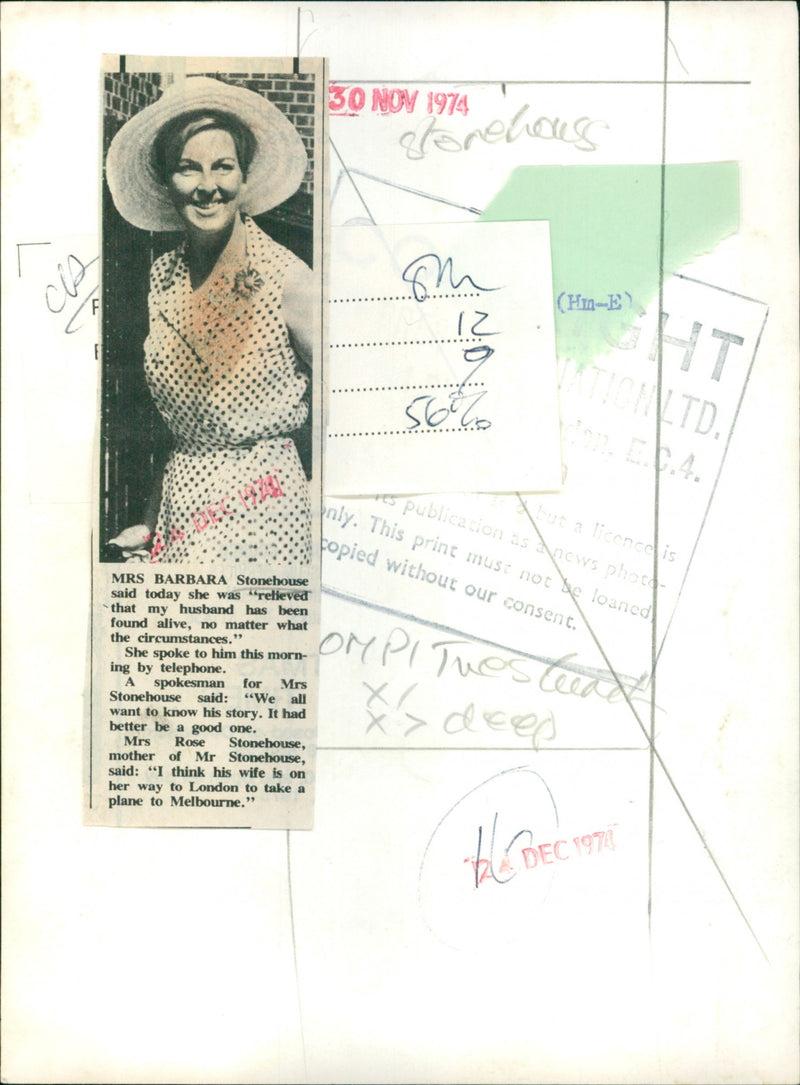 30 NOV 1974
Stonehouse
(Hm-E)
12
9
56%
GHT
LTD.
E.C.4.
24 DEC 1974
its publication as a news photo-
but a licence is
only. This print must not be loaned,
copied without our consent.
MRS BARBARA Stonehouse
said today she was “relieved
that my husband has been
found alive, no matter what
the circumstances.”
She spoke to him this morn-
ing by telephone.
A spokesman for Mrs
Stonehouse said: “We all
want to know his story. It had
better be a good one.
Mrs Rose Stonehouse,
mother of Mr Stonehouse,
said: “I think his wife is on
her way to London to take a
plane to Melbourne.”
deep
24 DEC 1974